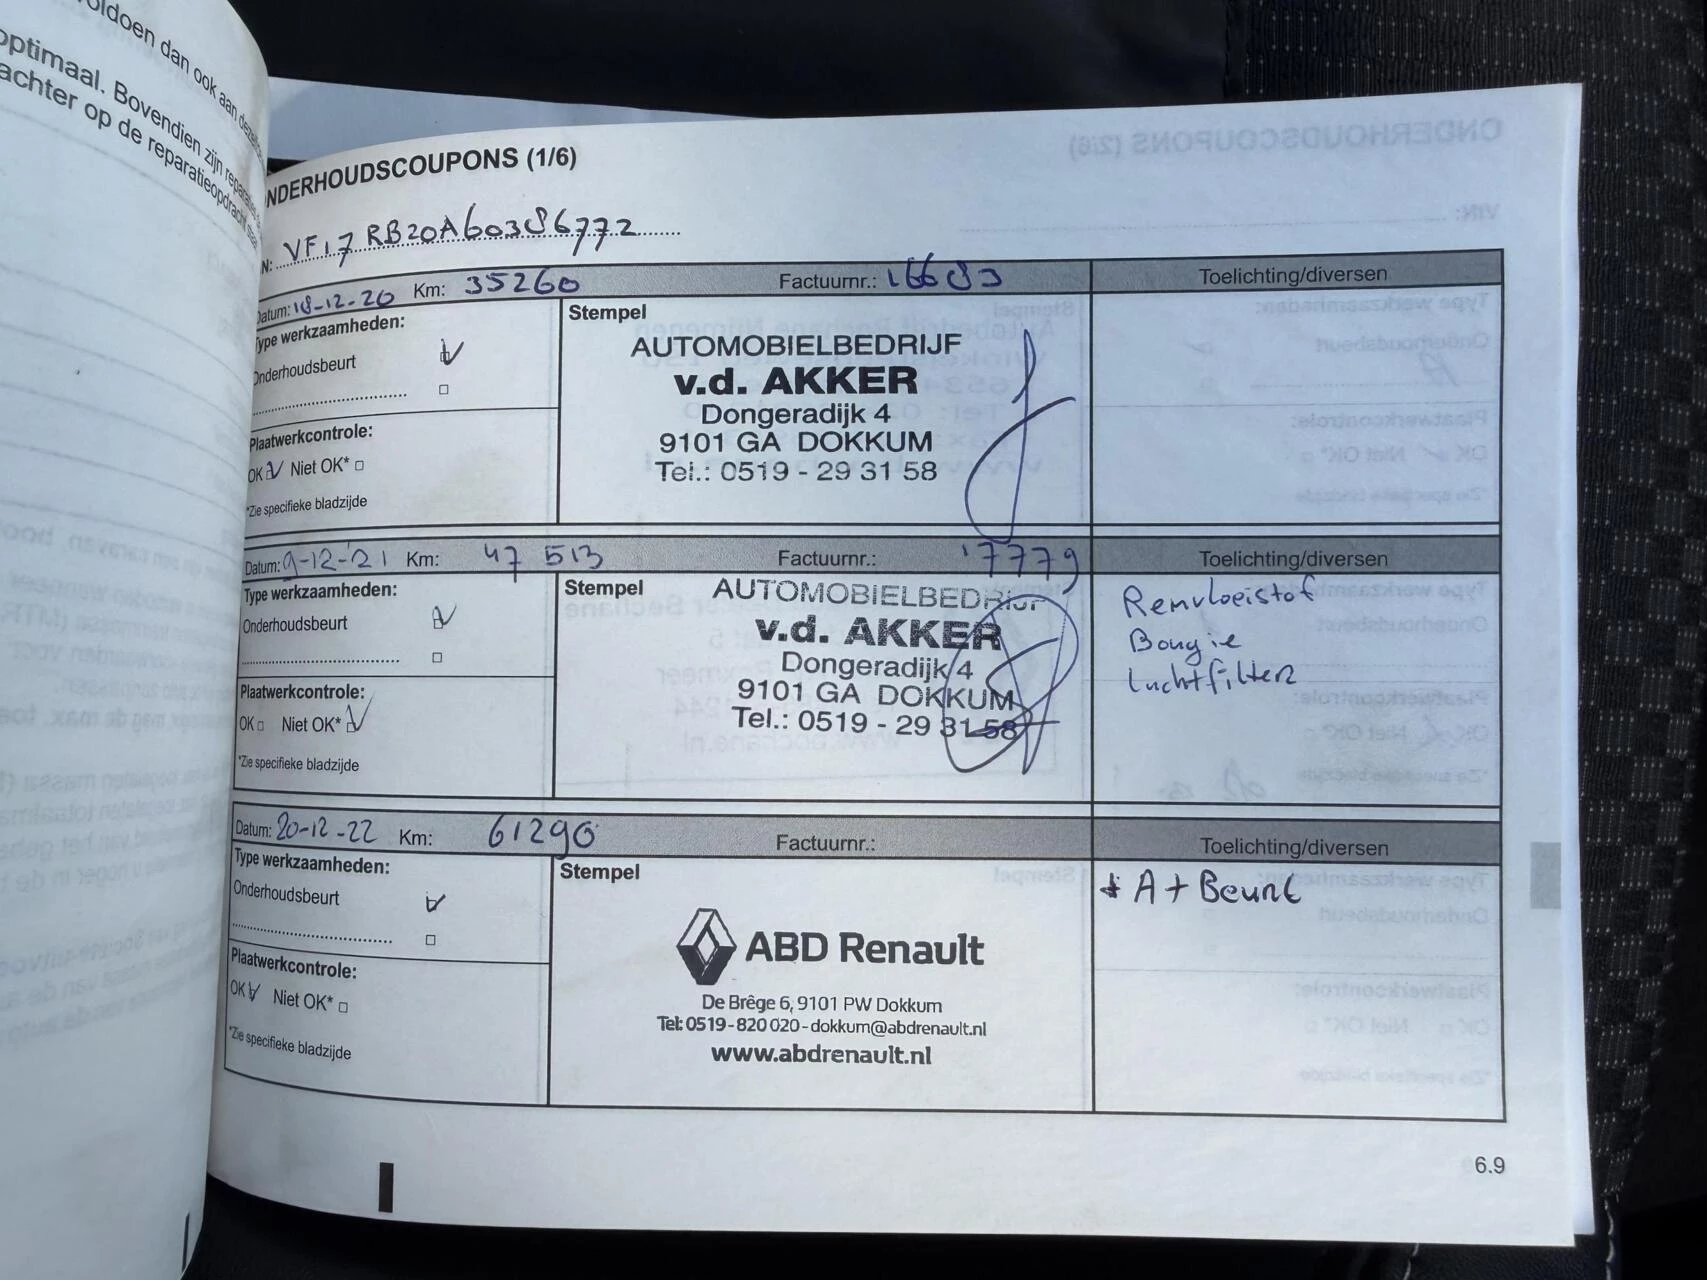 oldoen dan ook aan deze
optimaal. Bovendien zijn
achter op de reparatieopdracht
NDERHOUDSCOUPONS (1/6)
N: VF17RB20A60386772
Datum: 18-12-20 Km: 35260 Factuurnr.: 16683 Toelichting/diversen
Type werkzaamheden:
Onderhoudsbeurt
Plaatwerkcontrole:
OK Niet OK*
*Zie specifieke bladzijde
Stempel
AUTOMOBIELBEDRIJF
v.d. AKKER
Dongeradijk 4
9101 GA DOKKUM
Tel.: 0519 - 29 31 58
Datum: 9-12-'21 Km: 47 513 Factuurnr.: 17779 Toelichting/diversen
Type werkzaamheden:
Onderhoudsbeurt
Plaatwerkcontrole:
OK Niet OK*
*Zie specifieke bladzijde
Stempel
AUTOMOBIELBEDRIJF
v.d. AKKER
Dongeradijk 4
9101 GA DOKKUM
Tel.: 0519 - 29 31 58
Remvloeistof
Bougie
Luchtfilter
Datum: 20-12-22 Km: 61290 Factuurnr.: Toelichting/diversen
Type werkzaamheden:
Onderhoudsbeurt
Plaatwerkcontrole:
OK Niet OK*
*Zie specifieke bladzijde
Stempel
ABD Renault
De Brêge 6, 9101 PW Dokkum
Tel: 0519-820 020-dokkum@abdrenault.nl
www.abdrenault.nl
* A + Beurt
6.9